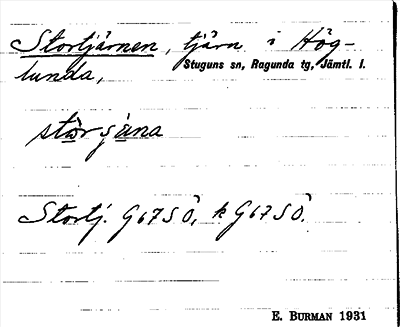 Stortjärnen, tjärn i Hög-
Stuguns sn, Ragunda tg, Jämtl. l.
lunda,
stòrsjäna
Stortj. G67SÖ, k G67SÖ.
E. BURMAN 1931